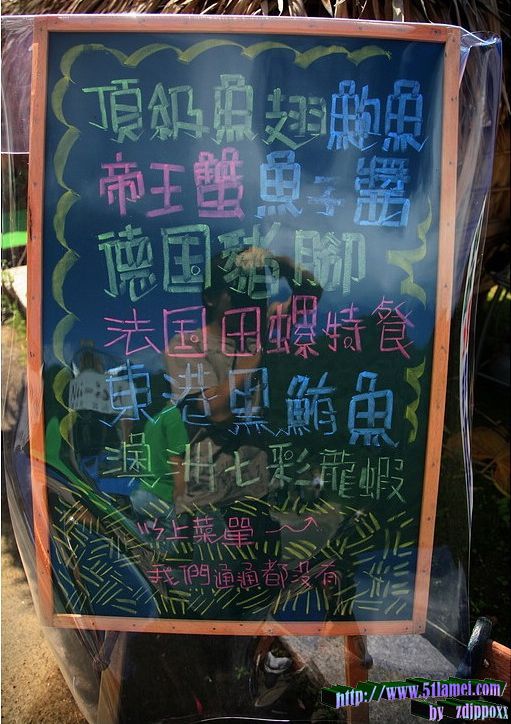 頂級魚翅鮑魚
帝王蟹魚子醬
德国豬腳
法国田螺特餐
東港黑鮪魚
澳洲七彩龍蝦
以上菜單
我們通通都没有
http://www.51lamei.com
by zdjppoxx